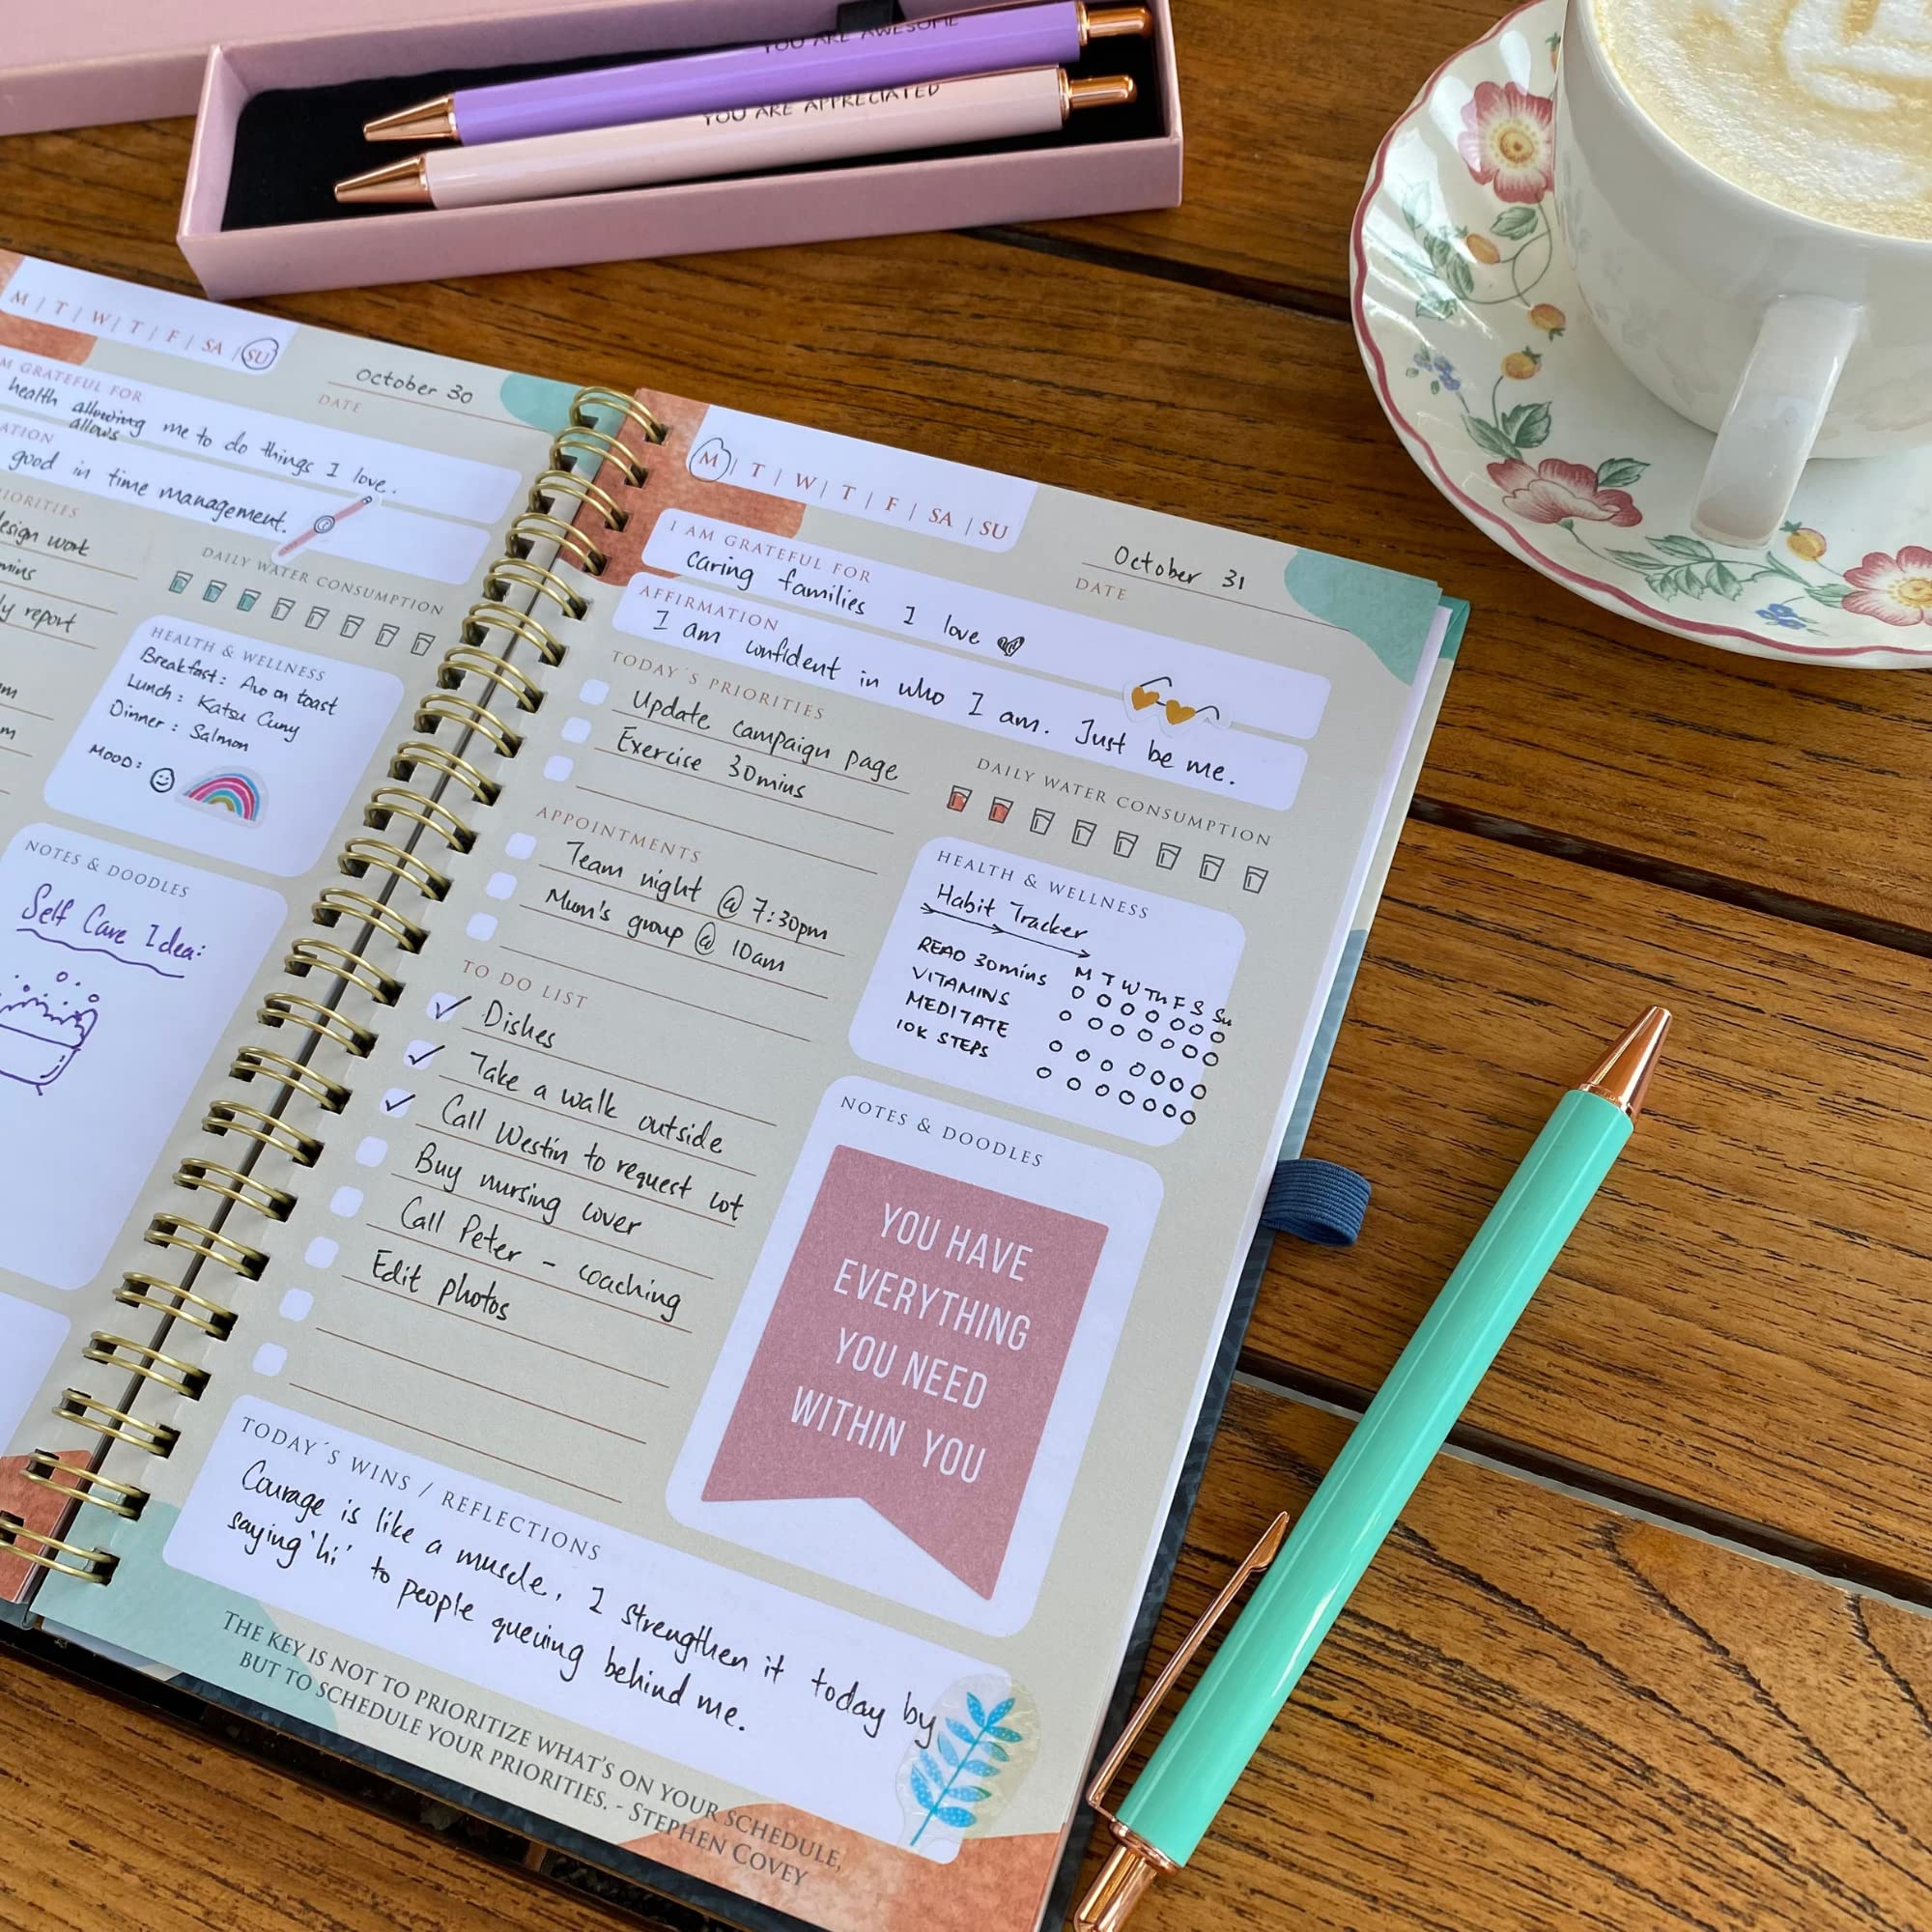 YOU ARE AWESOME
YOU ARE APPRECIATED
M | T | W | T | F | SA | SU
October 30
DATE
M GRATEFUL FOR
health allowing me to do things I love.
allows
ATION
good in time management.
IORITIES
design work
mins
ly report
DAILY WATER CONSUMPTION
HEALTH & WELLNESS
Breakfast: Avo on toast
Lunch: Katsu Curry
Dinner: Salmon
MOOD:
NOTES & DOODLES
Self Care Idea:
M | T | W | T | F | SA | SU
October 31
DATE
I AM GRATEFUL FOR
caring families I love
AFFIRMATION
I am confident in who I am. Just be me.
TODAY´S PRIORITIES
Update campaign page
Exercise 30mins
APPOINTMENTS
Team night @ 7:30pm
Mum's group @ 10am
TO DO LIST
Dishes
Take a walk outside
Call Westin to request cot
Buy nursing cover
Call Peter - coaching
Edit photos
DAILY WATER CONSUMPTION
HEALTH & WELLNESS
Habit Tracker
M T W Th F S Su
READ 30mins
VITAMINS
MEDITATE
10K STEPS
NOTES & DOODLES
YOU HAVE
EVERYTHING
YOU NEED
WITHIN YOU
TODAY´S WINS / REFLECTIONS
Courage is like a muscle, I strengthen it today by
saying 'hi' to people queuing behind me.
THE KEY IS NOT TO PRIORITIZE WHAT'S ON YOUR SCHEDULE,
BUT TO SCHEDULE YOUR PRIORITIES. - STEPHEN COVEY